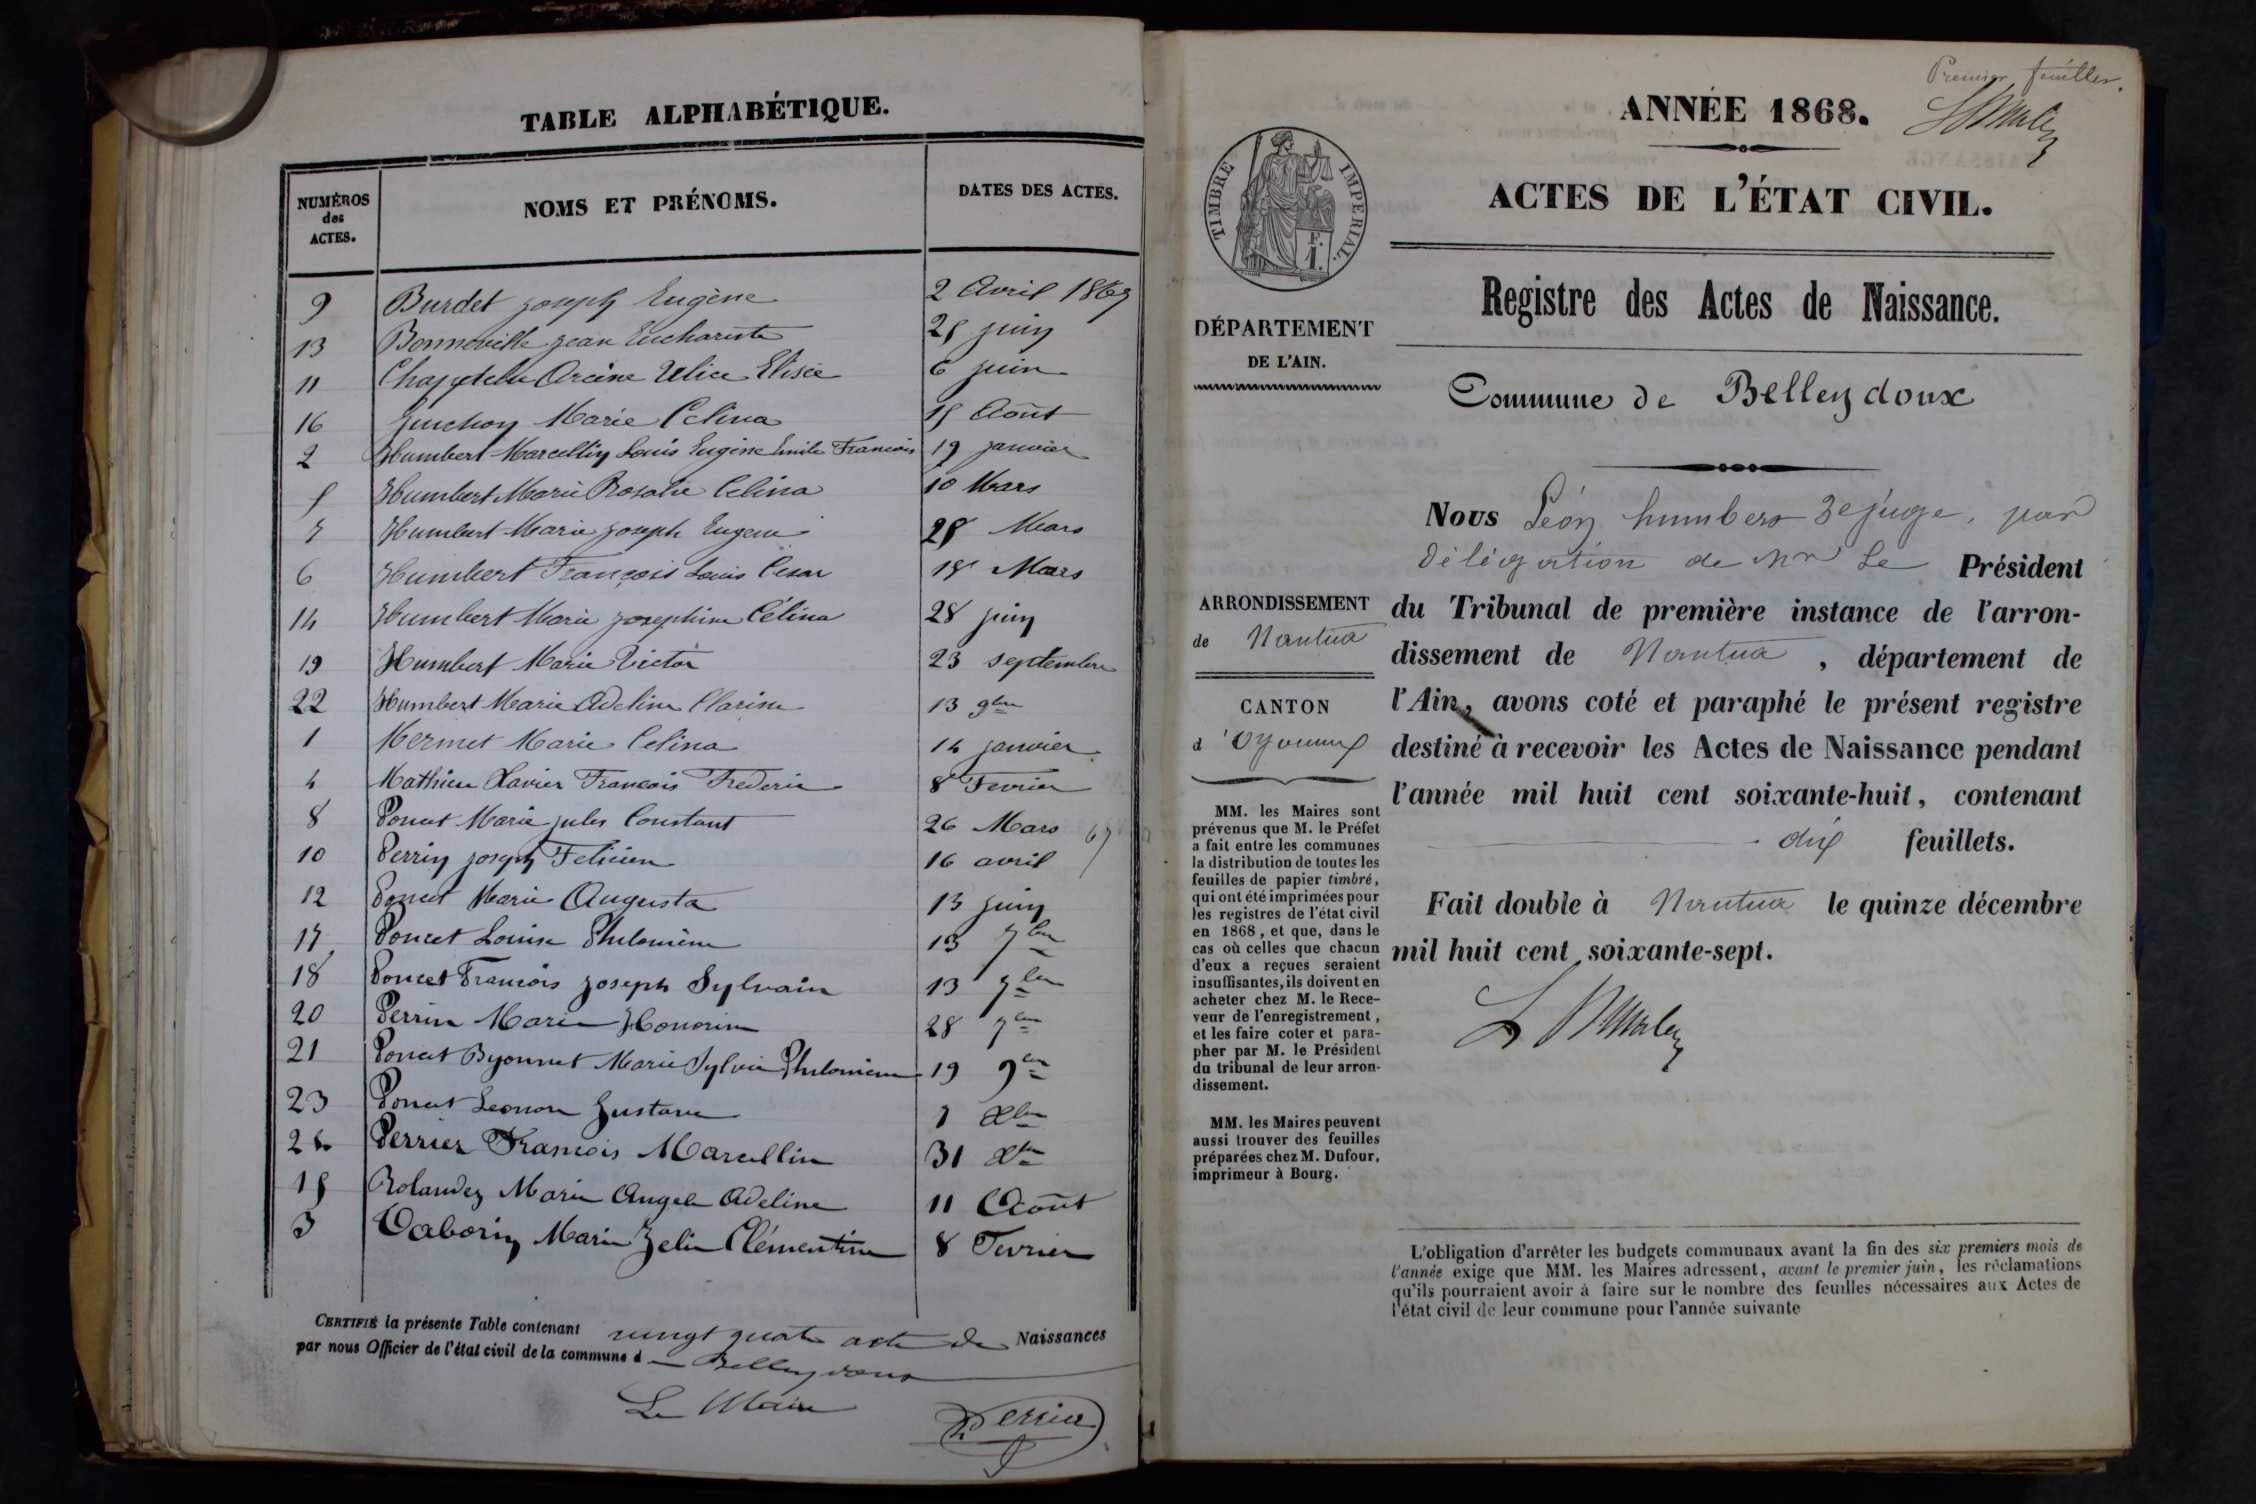 TABLE ALPHABÉTIQUE.
NUMÉROS des ACTES. NOMS ET PRÉNOMS. DATES DES ACTES.
9 Burdet joseph Eugène 2 Avril 1867
13 Bonneville jean Euchariste 25 juin
11 Arcène Ulice Elisée 6 juin
16 Marie Celina 15 Août
2 Humbert Marcellin Louis Eugène Emile Francois 19 janvier
5 Humbert Marie Rosalie Celina 10 Mars
7 Humbert Marie joseph Eugene 25 Mars
6 Humbert François Louis Cesar 15 Mars
14 Humbert Marie josephine Célina 28 juin
19 Humbert Marie Victor 23 septembre
22 Humbert Marie Adeline Clarisse 13 9bre
1 Mermet Marie Celina 14 janvier
4 Mathieu Xavier François Frederic 8 Fevrier
8 Poncet Marie jules Constant 26 Mars 67
10 Perrin joseph Felicien 16 avril
12 Poncet Marie Augusta 13 juin
17 Poncet Louise Philomène 13 7bre
18 Poncet François joseph Sylvain 13 7bre
20 Perrin Marie Honorine 28 7bre
21 Poncet Byonnet Marie Sylvie Philomène 19 9bre
23 Poncet Leonon Gustave 1 Xbre
24 Perrier François Marcellin 31 Xbre
15 Rolandez Marie Angele Adeline 11 Août
3 Taborin Marie Zelie Clémentine 8 Fevrier
CERTIFIÉ la présente Table contenant vingt quatre acte de Naissances
par nous Officier de l'état civil de la commune d Belleydoux
Le Maire
Perrier
Premier feuillet.
ANNÉE 1868.
ACTES DE L'ÉTAT CIVIL.
TIMBRE IMPÉRIAL.
F.
1.
Registre des Actes de Naissance.
DÉPARTEMENT
DE L'AIN.
Commune de Belleydoux
Nous Léon humbert Juge, par
délégation de Mr Le Président
du Tribunal de première instance de l'arron-
dissement de Nantua, département de
l'Ain, avons coté et paraphé le présent registre
destiné à recevoir les Actes de Naissance pendant
l'année mil huit cent soixante-huit, contenant
dix feuillets.
Fait double à Nantua le quinze décembre
mil huit cent soixante-sept.
ARRONDISSEMENT
de Nantua
CANTON
d'Oyonnax
MM. les Maires sont
prévenus que M. le Préfet
a fait entre les communes
la distribution de toutes les
feuilles de papier timbré,
qui ont été imprimées pour
les registres de l'état civil
en 1868, et que, dans le
cas où celles que chacun
d'eux a reçues seraient
insuffisantes, ils doivent en
acheter chez M. le Rece-
veur de l'enregistrement,
et les faire coter et para-
pher par M. le Président
du tribunal de leur arron-
dissement.
MM. les Maires peuvent
aussi trouver des feuilles
préparées chez M. Dufour,
imprimeur à Bourg.
L'obligation d'arrêter les budgets communaux avant la fin des six premiers mois de
l'année exige que MM. les Maires adressent, avant le premier juin, les réclamations
qu'ils pourraient avoir à faire sur le nombre des feuilles nécessaires aux Actes de
l'état civil de leur commune pour l'année suivante